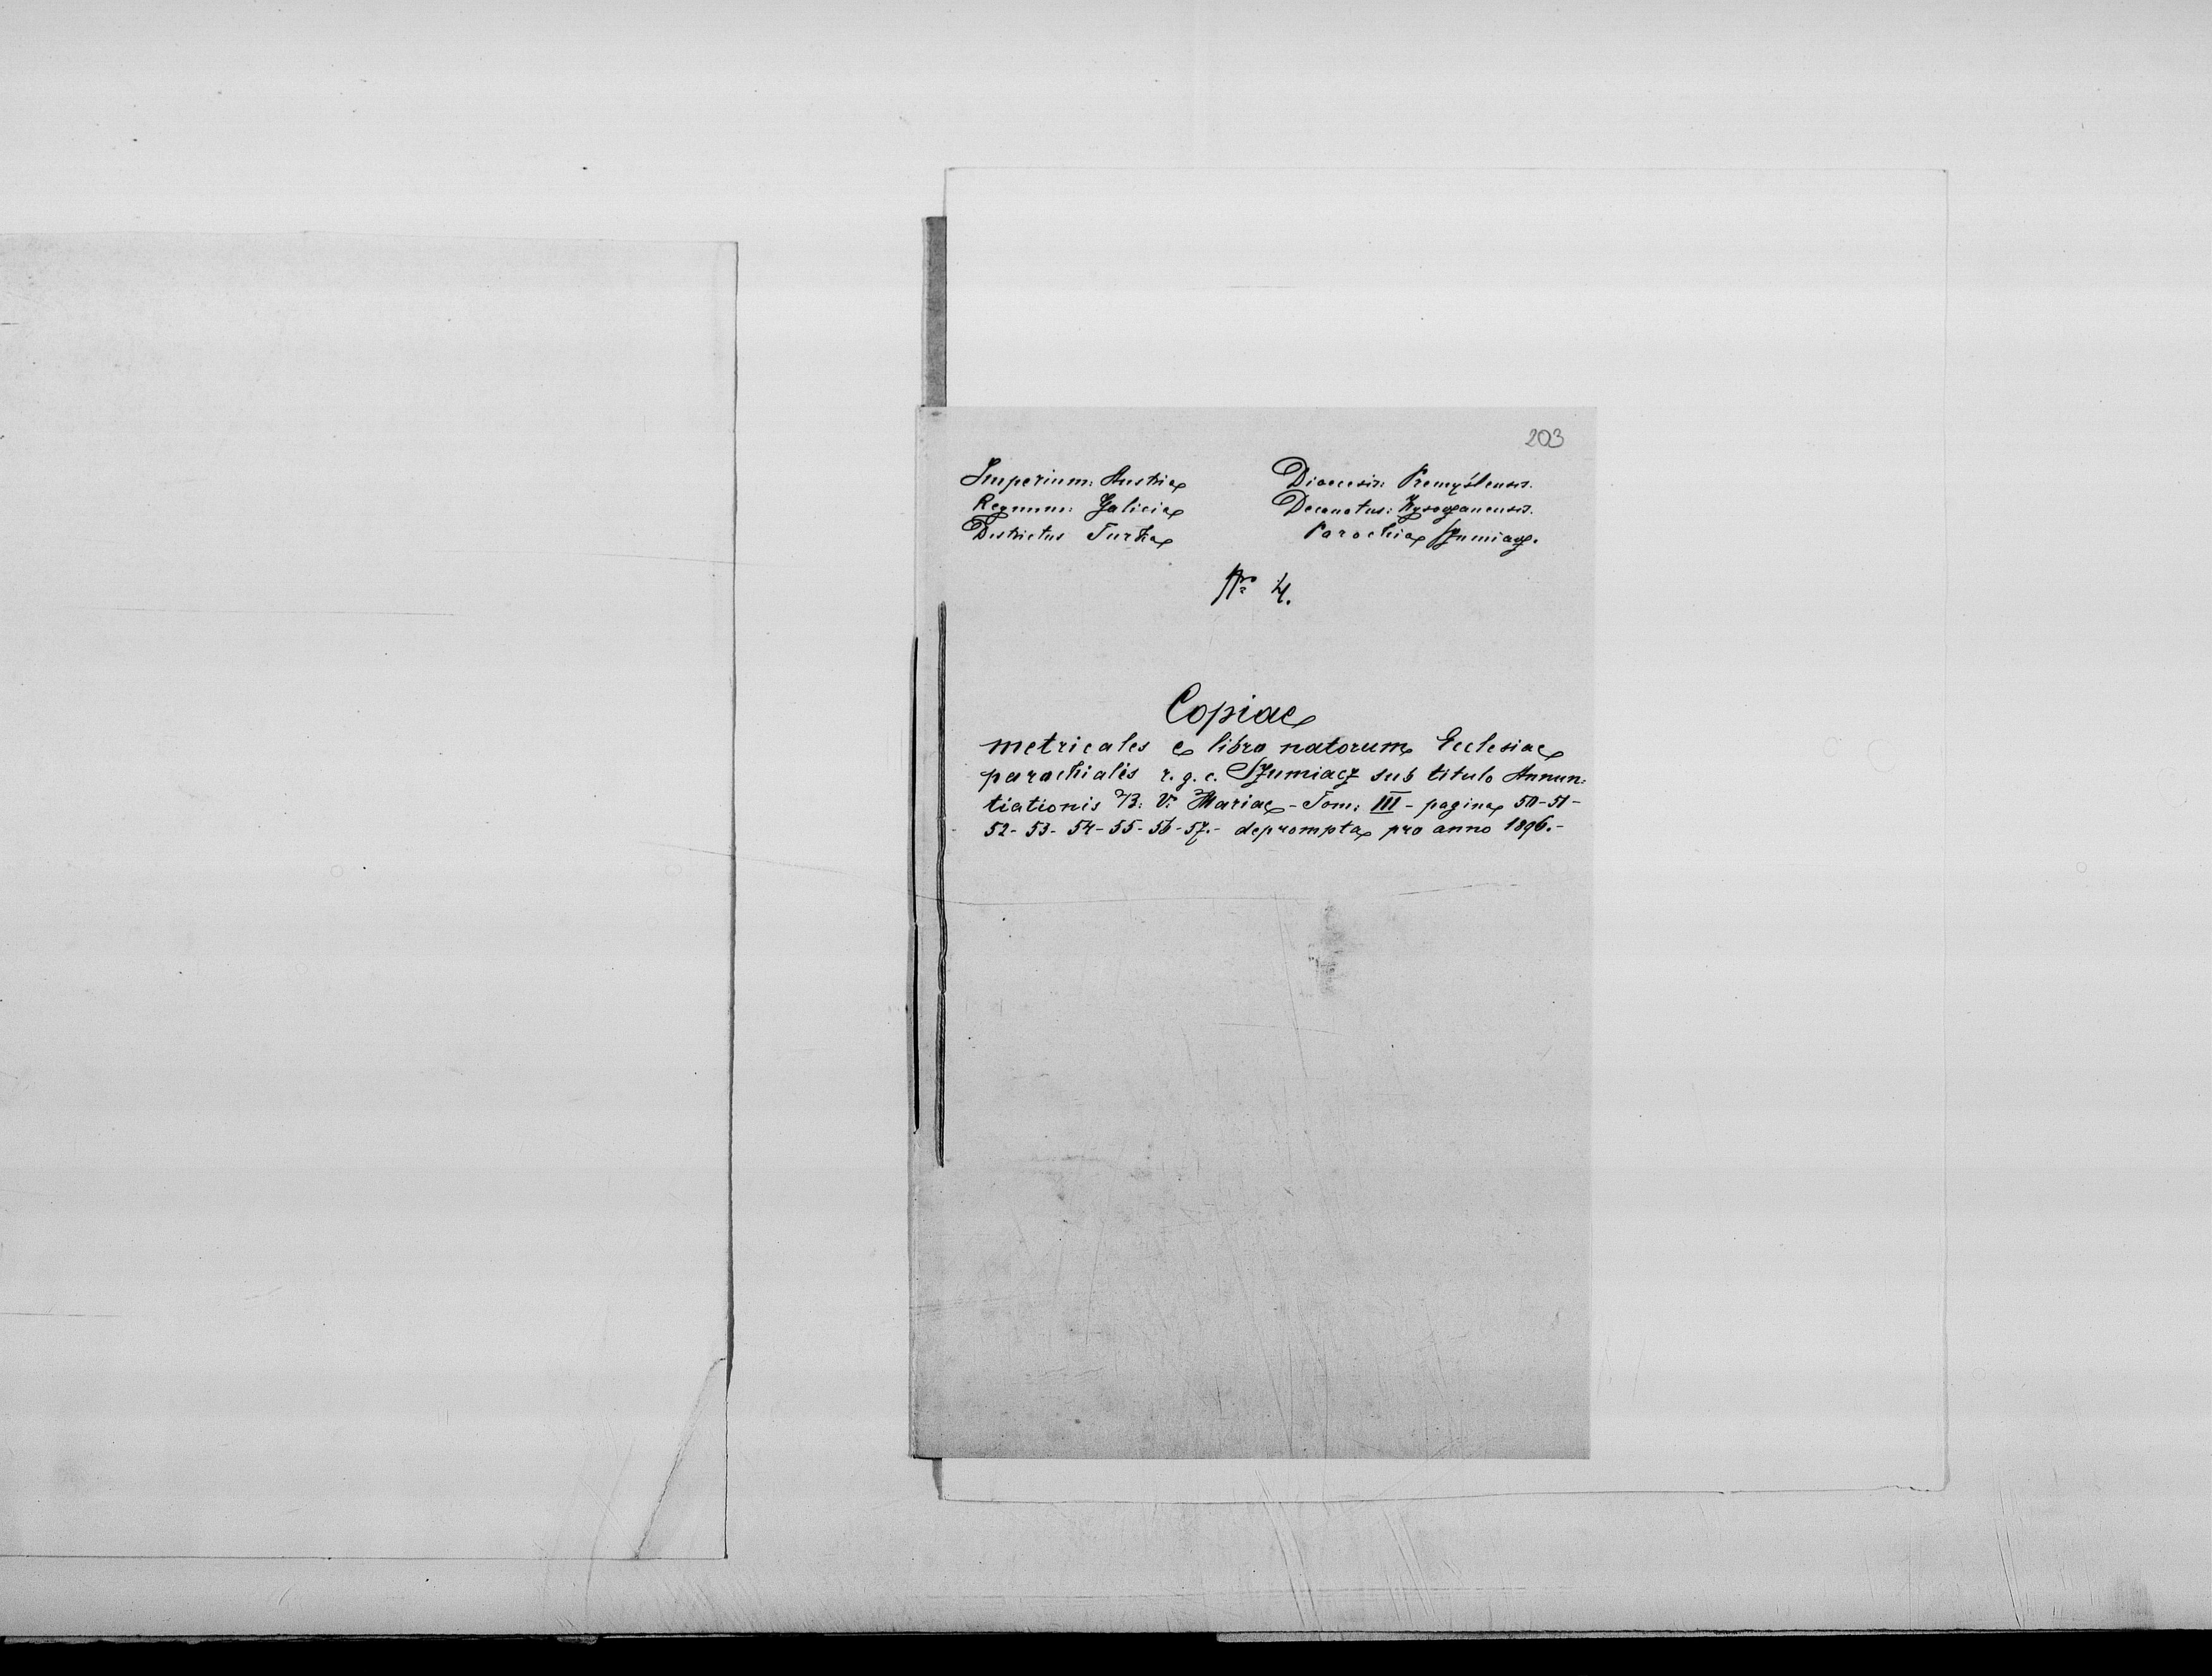 203
Imperium: Austriae Dioecesis: Premyślensis.
Regnum: Galiciae Decanatus: Wysoczanensis.
Districtus Turka Parochia Szumiacz.
No 4.
Copiae
metricales e libro natorum Ecclesiae
parochialis r. g. c. Szumiacz sub titulo Annun:
tiationis B: V: Mariae - Tom: III - pagina 50-51-
52-53-54-55-56-57.- deprompta pro anno 1896.-